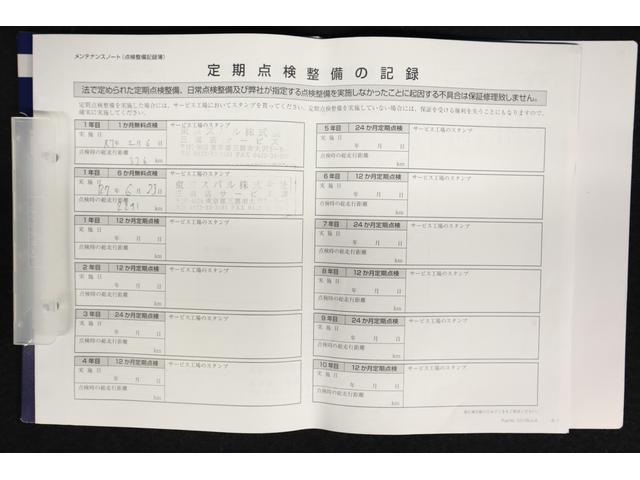 メンテナンスノート(点検整備記録簿)
定期点検整備の記録
法で定められた定期点検整備、日常点検整備及び弊社が指定する点検整備を実施しなかったことに起因する不具合は保証修理致しません。
定期点検整備を実施した場合には、サービス工場においてスタンプを貰ってください。定期点検整備を実施していない場合には、保証を受ける権利を失うことにもなりますので、
確実に実施してください。
1年目 1か月無料点検 サービス工場のスタンプ
実施日
年 月 6日
点検時の総走行距離
326 km
東京スバル株式会社
三鷹店サービス
1年目 6か月無料点検 サービス工場のスタンプ
実施日
年 6月 23日
点検時の総走行距離
km
東京スバル株式会社
三鷹店サービス
1年目 12か月定期点検 サービス工場のスタンプ
実施日
年 月 日
点検時の総走行距離
km
2年目 12か月定期点検 サービス工場のスタンプ
実施日
年 月 日
点検時の総走行距離
km
3年目 24か月定期点検 サービス工場のスタンプ
実施日
年 月 日
点検時の総走行距離
km
4年目 12か月定期点検 サービス工場のスタンプ
実施日
年 月 日
点検時の総走行距離
km
5年目 24か月定期点検 サービス工場のスタンプ
実施日
年 月 日
点検時の総走行距離
km
6年目 12か月定期点検 サービス工場のスタンプ
実施日
年 月 日
点検時の総走行距離
km
7年目 24か月定期点検 サービス工場のスタンプ
実施日
年 月 日
点検時の総走行距離
km
8年目 12か月定期点検 サービス工場のスタンプ
実施日
年 月 日
点検時の総走行距離
km
9年目 24か月定期点検 サービス工場のスタンプ
実施日
年 月 日
点検時の総走行距離
km
10年目 12か月定期点検 サービス工場のスタンプ
実施日
年 月 日
点検時の総走行距離
km